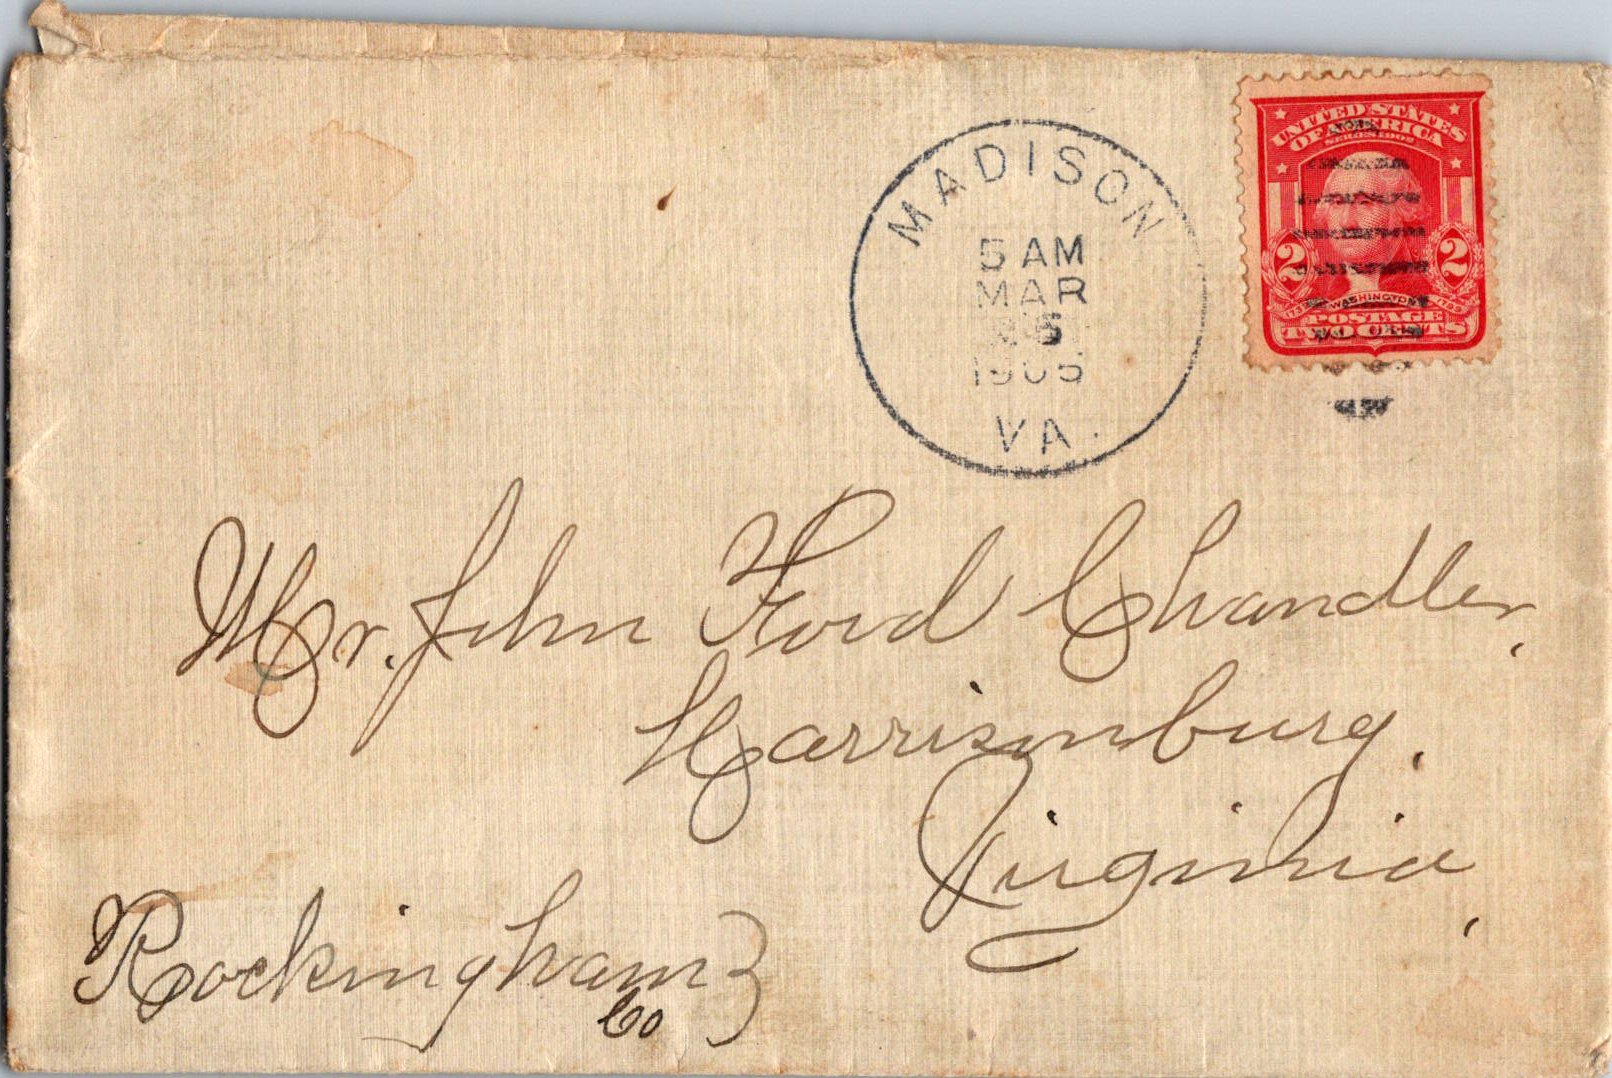 MADISON
5 AM
MAR
1905
VA.
UNITED STATES
OF AMERICA
SERIES 1902
2 2
WASHINGTON
POSTAGE
TWO CENTS
Mr. John Ford Chandler,
Harrisonburg,
Virginia,
Rockingham
Co